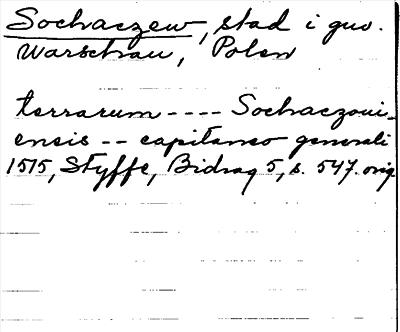 Sochaczew, stad i guv.
Warschau, Polen
terrarum ---- Sochaczoui-
ensis -- capitaneo generali
1515, Styffe, Bidrag 5, s. 547. orig.